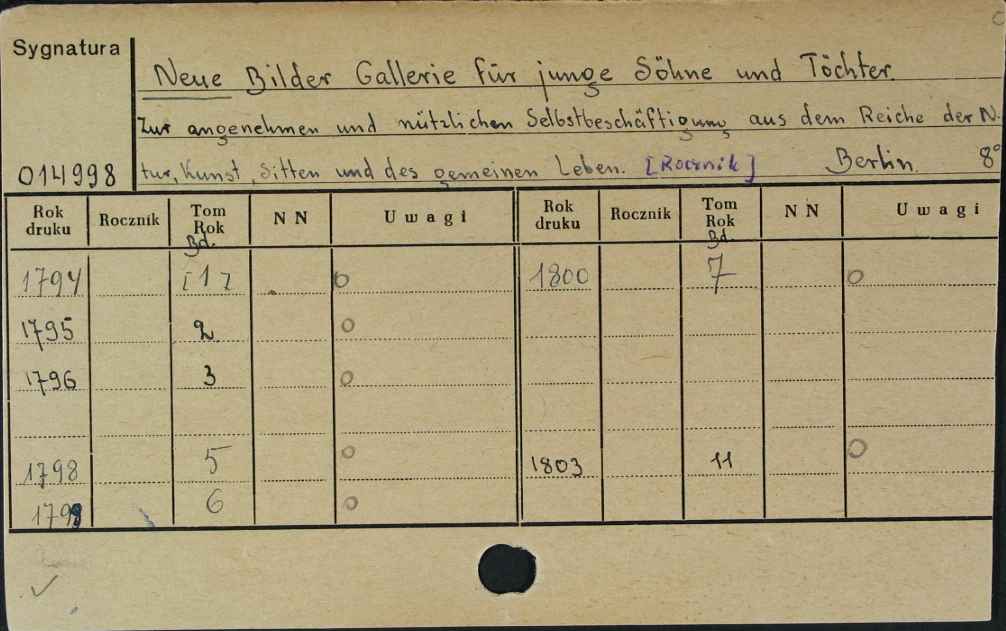 Sygnatura
Neue Bilder Gallerie für junge Söhne und Töchter.
Zur angenehmen und nützlichen Selbstbeschäftigung aus dem Reiche der Na-
014998 tur, Kunst, Sitten und des gemeinen Leben. [Rocznik] Berlin. 8°
Rok druku Rocznik Tom Rok Bd. NN Uwagi Rok druku Rocznik Tom Rok Bd. NN Uwagi
1794 [1] O 1800 7 O
1795 2. O
1796 3 O
1798 5 O 1803 11 O
1799 6 O